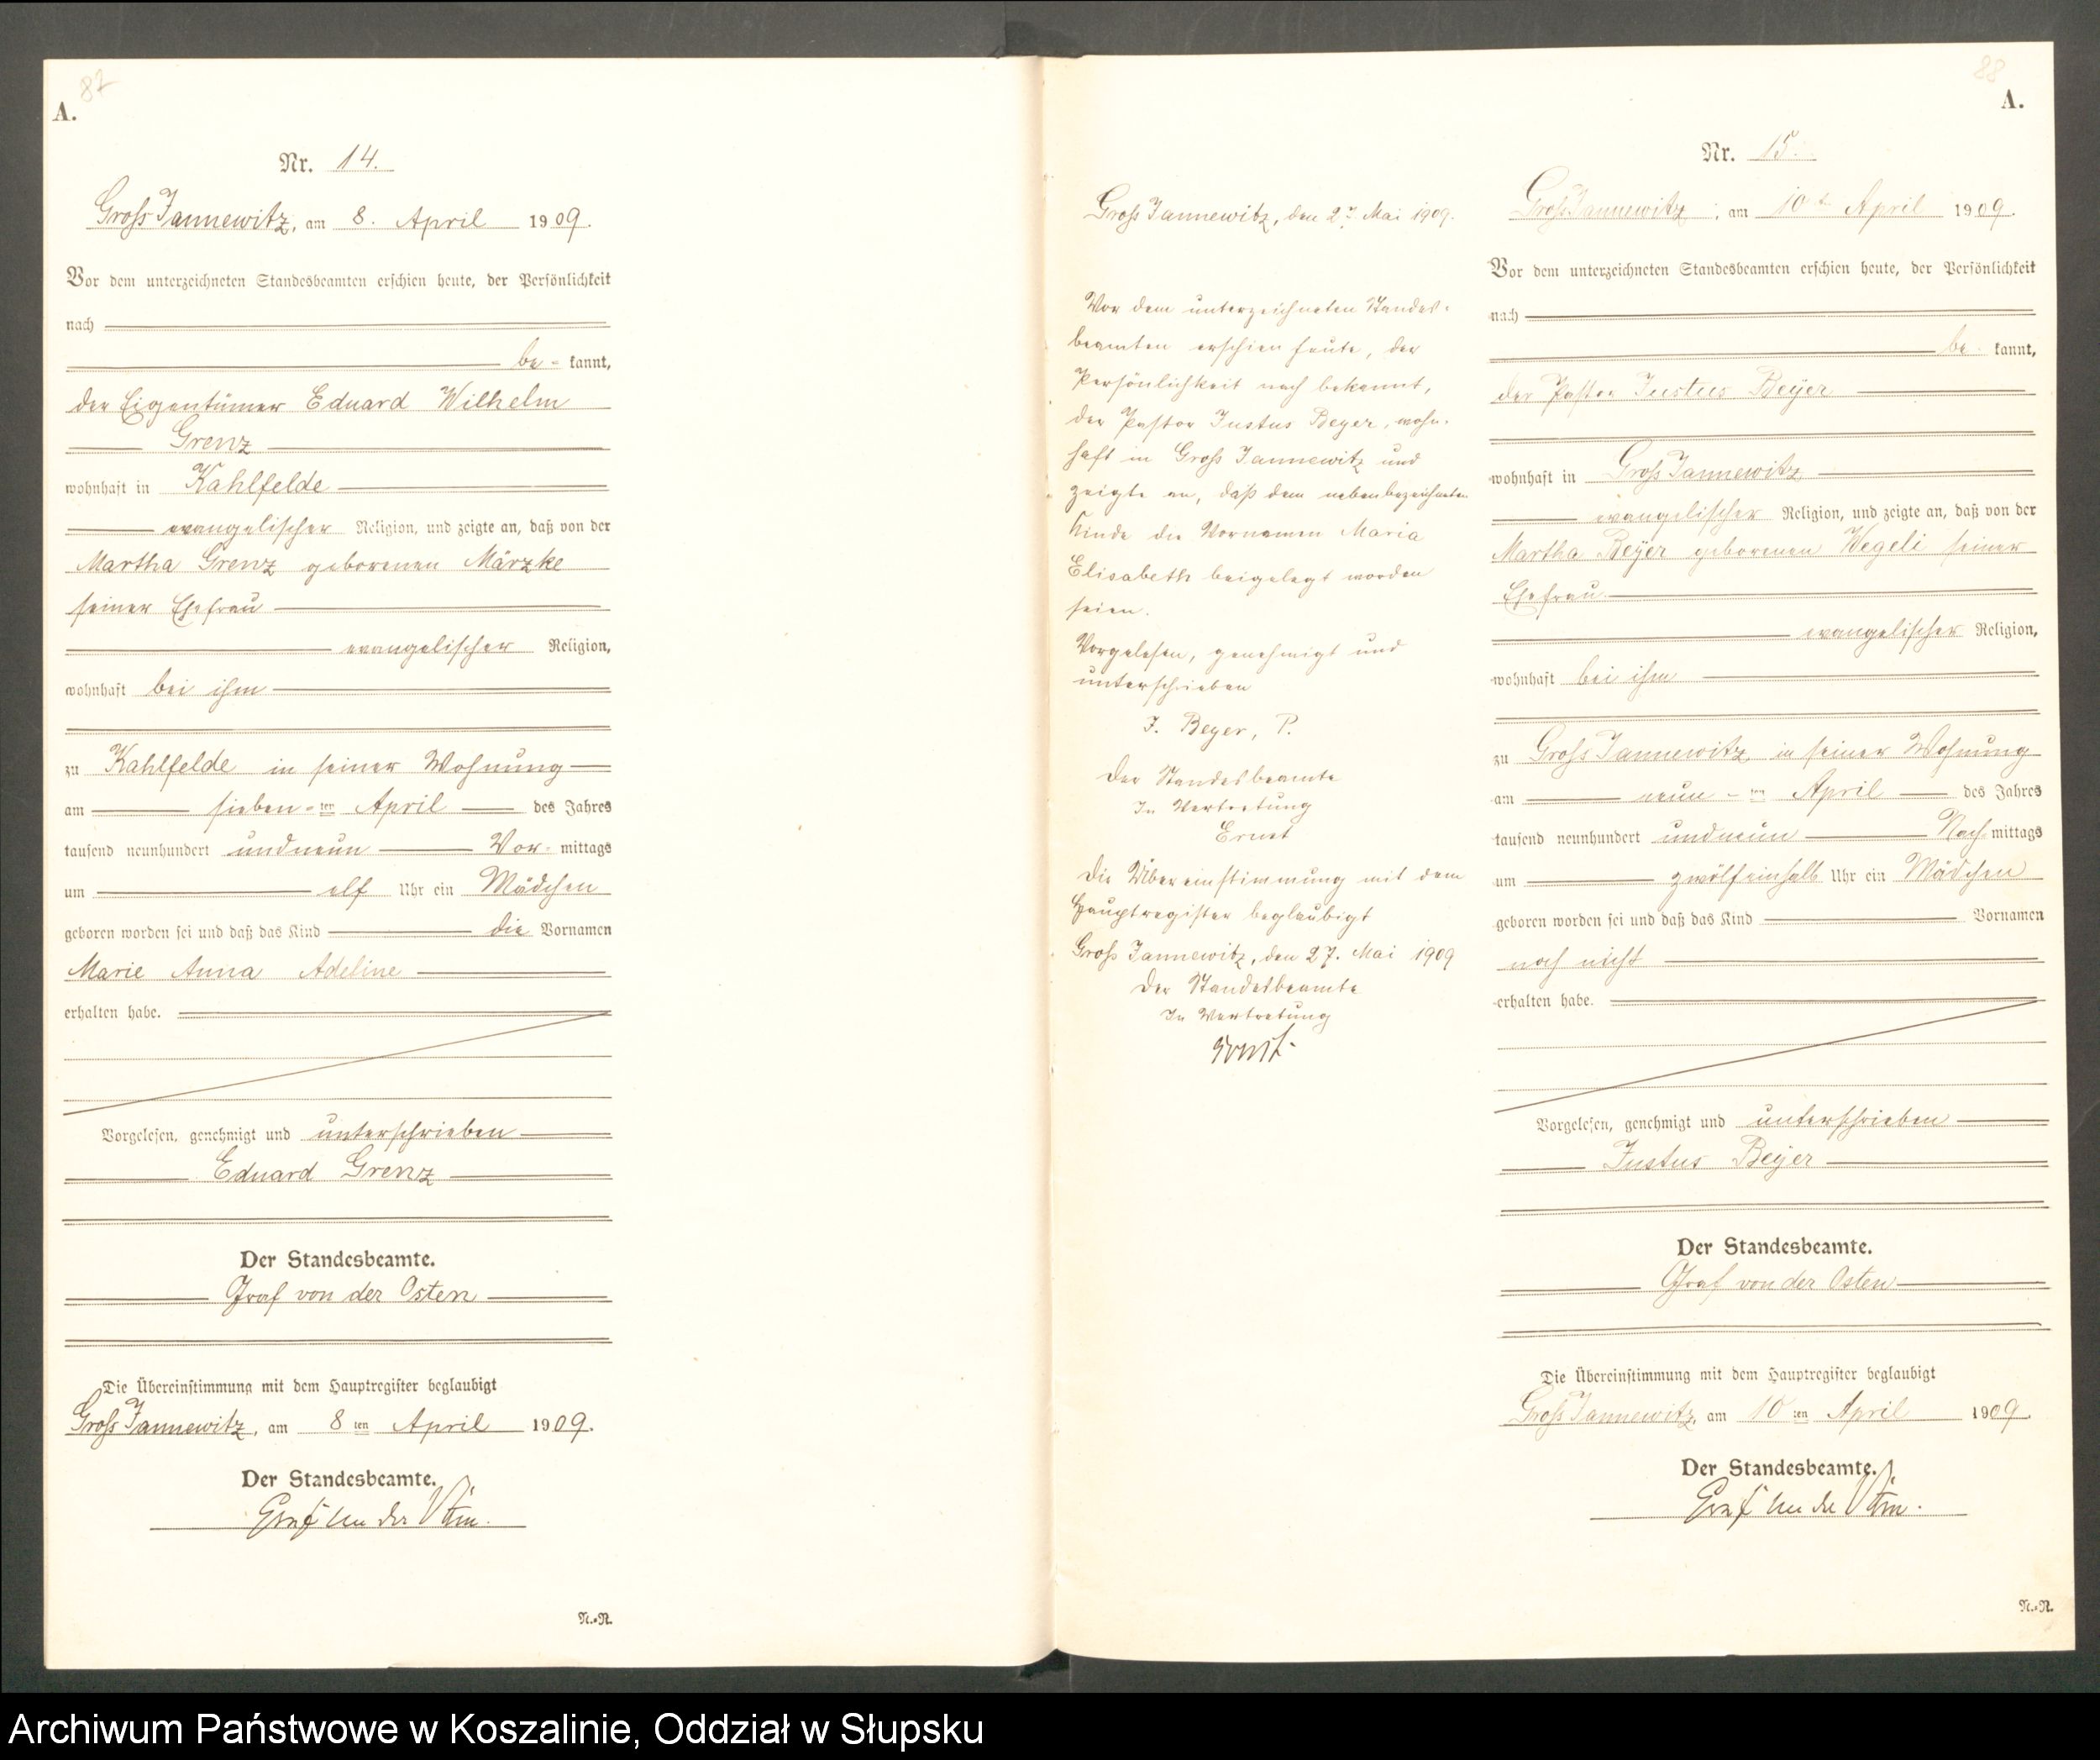 87
A.
Nr. 14.
Gross Jannewitz, am 8. April 1909.
Vor dem unterzeichneten Standesbeamten erschien heute, der Persönlichkeit
nach
be- kannt,
der Eigentümer Eduard Wilhelm
Grenz
wohnhaft in Kahlfelde
evangelischer Religion, und zeigte an, daß von der
Martha Grenz geborenen Märzke
seiner Ehefrau
evangelischer Religion,
wohnhaft bei ihm
zu Kahlfelde in seiner Wohnung
am sieben-ten April des Jahres
tausend neunhundert undneun Vor- mittags
um elf Uhr ein Mädchen
geboren worden sei und daß das Kind die Vornamen
Marie Anna Adeline
erhalten habe.
Vorgelesen, genehmigt und unterschrieben
Eduard Grenz
Der Standesbeamte.
Graf von der Osten
Die Übereinstimmung mit dem Hauptregister beglaubigt
Gross Jannewitz, am 8 ten April 1909.
Der Standesbeamte.
Graf von der Osten.
N.=N.
Gross Jannewitz, den 27. Mai 1909.
Vor dem unterzeichneten Standes-
beamten erschien heute, der
Persönlichkeit nach bekannt,
der Pastor Justus Beyer, wohn-
haft in Gross Jannewitz und
zeigte an, daß dem nebenbezeichneten
Kinde die Vornamen Maria
Elisabeth beigelegt worden
seien.
Vorgelesen, genehmigt und
unterschrieben
J. Beyer, P.
Der Standesbeamte
In Vertretung
Ernst
Die Übereinstimmung mit dem
Hauptregister beglaubigt
Gross Jannewitz, den 27. Mai 1909
Der Standesbeamte
In Vertretung
Ernst.
88
A.
Nr. 15.
Gross Jannewitz, am 10ten April 1909.
Vor dem unterzeichneten Standesbeamten erschien heute, der Persönlichkeit
nach
be- kannt,
der Pastor Justus Beyer
wohnhaft in Gross Jannewitz
evangelischer Religion, und zeigte an, daß von der
Martha Beyer geborenen Wegeli seiner
Ehefrau
evangelischer Religion,
wohnhaft bei ihm
zu Gross Jannewitz in seiner Wohnung
am neun-ten April des Jahres
tausend neunhundert undneun Nach-mittags
um zwölfeinhalb Uhr ein Mädchen
geboren worden sei und daß das Kind Vornamen
noch nicht
erhalten habe.
Vorgelesen, genehmigt und unterschrieben
Justus Beyer
Der Standesbeamte.
Graf von der Osten
Die Übereinstimmung mit dem Hauptregister beglaubigt
Gross Jannewitz, am 10 ten April 1909.
Der Standesbeamte.
Graf von der Osten.
N.=N.
Archiwum Państwowe w Koszalinie, Oddział w Słupsku